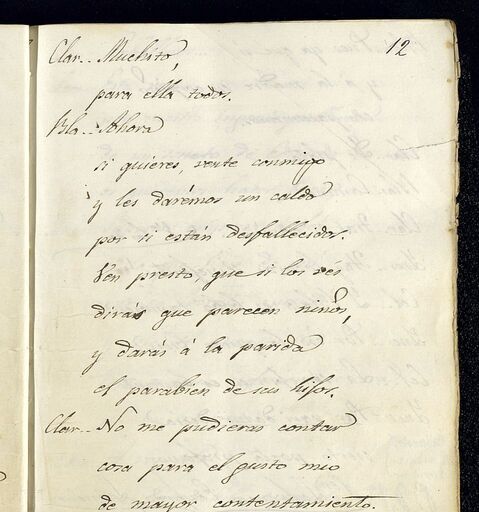 12
Clar.. Muchito,
para ella todos.
Bla.. Ahora
si quieres, vente conmigo
y les darémos un caldo
por si están desfallecidos.
Ven presto, que si los vés
dirás que parecen niños,
y darás á la parida
el parabien de sus hijos.
Clar.. No me pudieras contar
cosa para el gusto mio
de mayor contentamiento.